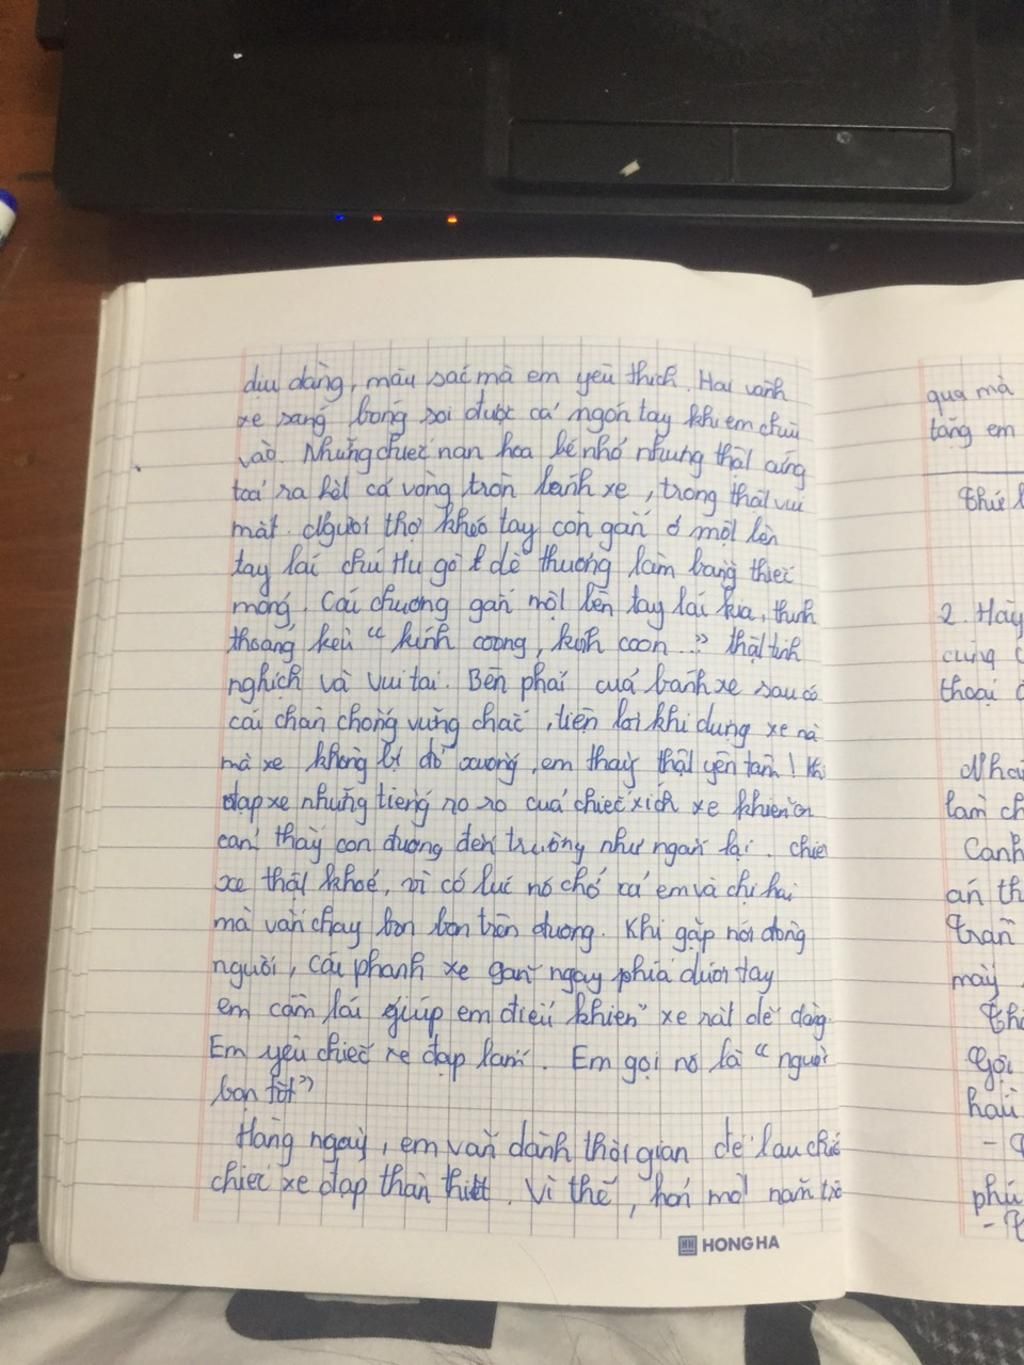 dịu dàng, màu sắc mà em yêu thích. Hai vành
xe sáng bóng soi được cả ngón tay khi em chùi
vào. Những chiếc nan hoa bé nhỏ nhưng thật cứng
toả ra hết cả vòng tròn bánh xe, trông thật vui
mắt. Người thợ khéo tay còn gắn ở một bên
tay lái chú Hugô dễ thương làm bằng thiếc
mỏng. Cái chuông gắn một bên tay lái kia, thỉnh
thoảng kêu " kính coong, kính coon..." thật tinh
nghịch và vui tai. Bên phải của bánh xe sau có
cái chân chống vững chắc, tiện lợi khi dựng xe nà
mà xe không bị đổ xuống, em thấy thật yên tâm! Khi
đạp xe những tiếng ro ro của chiếc xích xe khiến em
cảm thấy con đường đến trường như ngắn lại. Chiếc
xe thật khoẻ, vì có lúc nó chở cả em và chị hai
mà vẫn chạy bon bon trên đường. Khi gặp nơi đông
người, cái phanh xe gắn ngay phía dưới tay
em cầm lái giúp em điều khiển xe rất dễ dàng.
Em yêu chiếc xe đạp lắm. Em gọi nó là " người
bạn tốt"
Hằng ngày, em vẫn dành thời gian để lau chiế
chiếc xe đạp thân thiết. Vì thế, hơn một năm trô
HONG HA
qua mà
tặng em
2. Hãy
cùng
thoại
Nhà
làm ch
Canh
ăn th
Trần
mày
Gội
hầu
phú